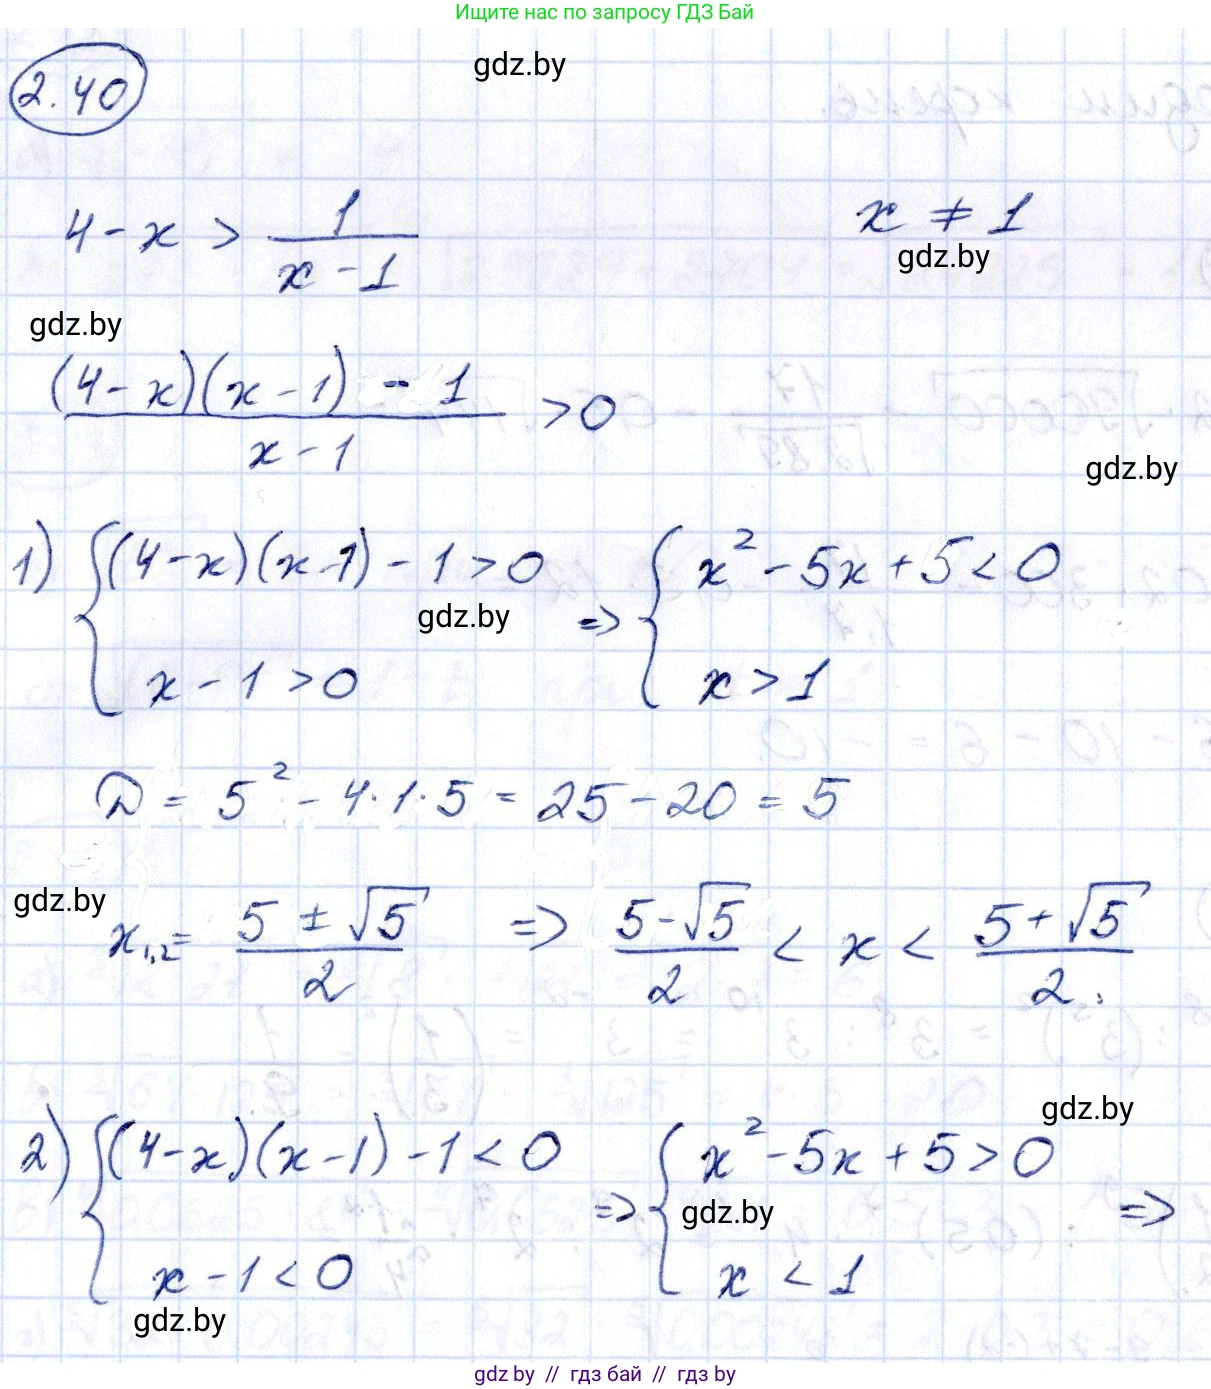 Ищите нас по запросу ГДЗ Бай
gdz.by
2.40
4 - x > 1/(x - 1)     x ≠ 1
gdz.by
gdz.by
((4 - x)(x - 1) - 1)/(x - 1) > 0
gdz.by
1) { (4 - x)(x - 1) - 1 > 0     => { x² - 5x + 5 < 0
gdz.by
x - 1 > 0     x > 1
D = 5² - 4·1·5 = 25 - 20 = 5
gdz.by
x1,2 = (5 ± √5)/2 => (5 - √5)/2 < x < (5 + √5)/2.
gdz.by
2) { (4 - x)(x - 1) - 1 < 0     => { x² - 5x + 5 > 0     =>
gdz.by
x - 1 < 0     x < 1
gdz.by
gdz by // гдз бай // гдз by